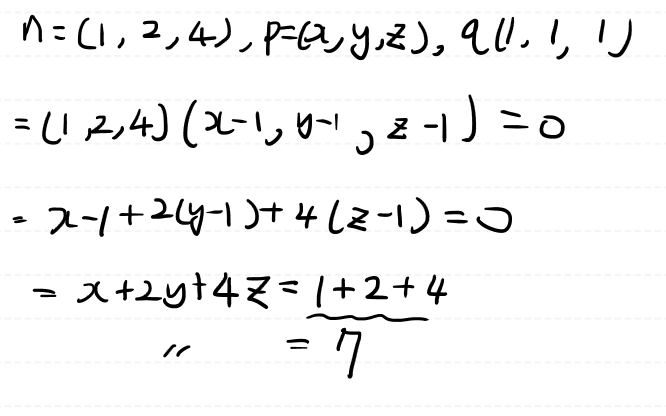 n=(1, 2, 4), p=(x, y, z), q(1, 1, 1)
=(1, 2, 4)(x-1, y-1, z-1) = 0
= x-1+2(y-1)+4(z-1)=0
= x+2y+4z=1+2+4
〃 = 7